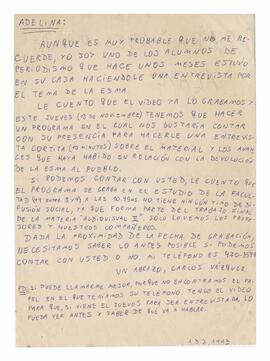 ADELINA:
AUNQUE ES MUY PROBABLE QUE NO ME RE-
CUERDE, YO SOY UNO DE LOS ALUMNOS DE
PERIODISMO QUE HACE UNOS MESES ESTUVO
EN SU CASA HACIENDOLE UNA ENTREVISTA POR
EL TEMA DE LA ESMA.
LE CUENTO QUE EL VIDEO YA LO GRABAMOS Y
ESTE JUEVES (DE NOVIEMBRE) TENEMOS QUE HACER
UN PROGRAMA EN EL CUAL NOS GUSTARIA CONTAR
CON SU PRESENCIA PARA HACERLE UNA ENTREVIS
TA CORTITA (MINUTOS) SOBRE EL MATERIAL Y LOS AVAN
CES QUE HAYA HABIDO EN RELACIÓN CON LA DEVOLUCIÓN
DE LA ESMA AL PUEBLO.
SI PODEMOS CONTAR CON USTED, LE CUENTO QUE
EL PROGRAMA SE GRABA EN EL ESTUDIO DE LA FACUL-
TAD A LAS NO TIENE NINGÚN TIPO DE DI
FUSIÓN SOCIAL, YA QUE FORMA PARTE DEL TRABAJO FINAL
DE LA MATERIA "AUDIOVISUAL II". SOLO LO VEMOS LOS PROFE
SORES Y NUESTROS COMPAÑEROS.
DADA LA PROXIMIDAD DE LA FECHA DE GRABACIÓN,
NECESITAMOS SABER LO ANTES POSIBLE SI PODEMOS
CONTAR CON USTED O NO. MI TELÉFONO ES
UN ABRAZO, CARLOS VÁZQUEZ.
SI PUEDE LLAMARME MEJOR, PORQUE NO ENCONTRAMOS EL PA-
PEL EN EL QUE TENÍAMOS SU TELÉFONO. TENGO EL VIDEO
PARA QUE, SI VIENE EL JUEVES PARA SER ENTREVISTADA, LO
PUEDA VER ANTES Y SABER DE QUÉ VA A HABLAR.